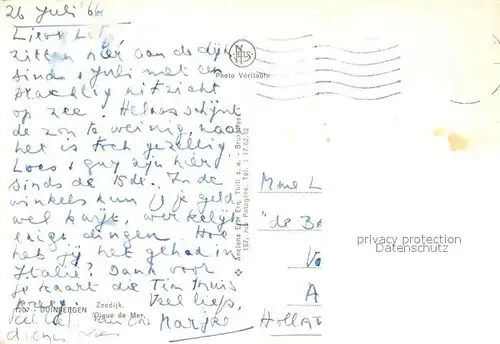 26 Juli '66
Lieve
zitten hier aan de dijk
sinds 1 Juli met een
prachtig uitzicht
op zee. Helaas schijnt
de zon te weinig, maar
het is toch gezellig.
Loes & Guy zijn hier
sinds de 15de. In de
winkels kun U je geld
wel kwijt, werkelijk
enige dingen. Hoe
heb jij het gehad in
Italië? Dank voor
je kaart die Tim thuis
kreeg. Veel liefs,
Marijke
Photo Véritable
Anciens Etn Ern. Thill s.a. - Bruxelles
197, Av. Tél. : 17.62.12
7207 - DUINBERGEN
Zeedijk.
Digue de Mer.
Mme L
"de B
Vo
A
Holla
privacy protection
Datenschutz